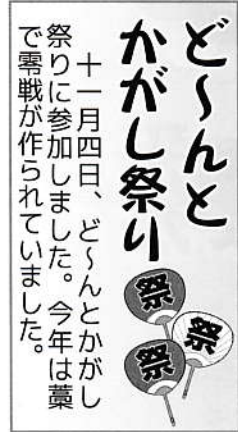 ど～んと
かがし祭り
祭
祭
祭
十一月四日、ど～んとかがし
祭りに参加しました。今年は藁
で零戦が作られていました。